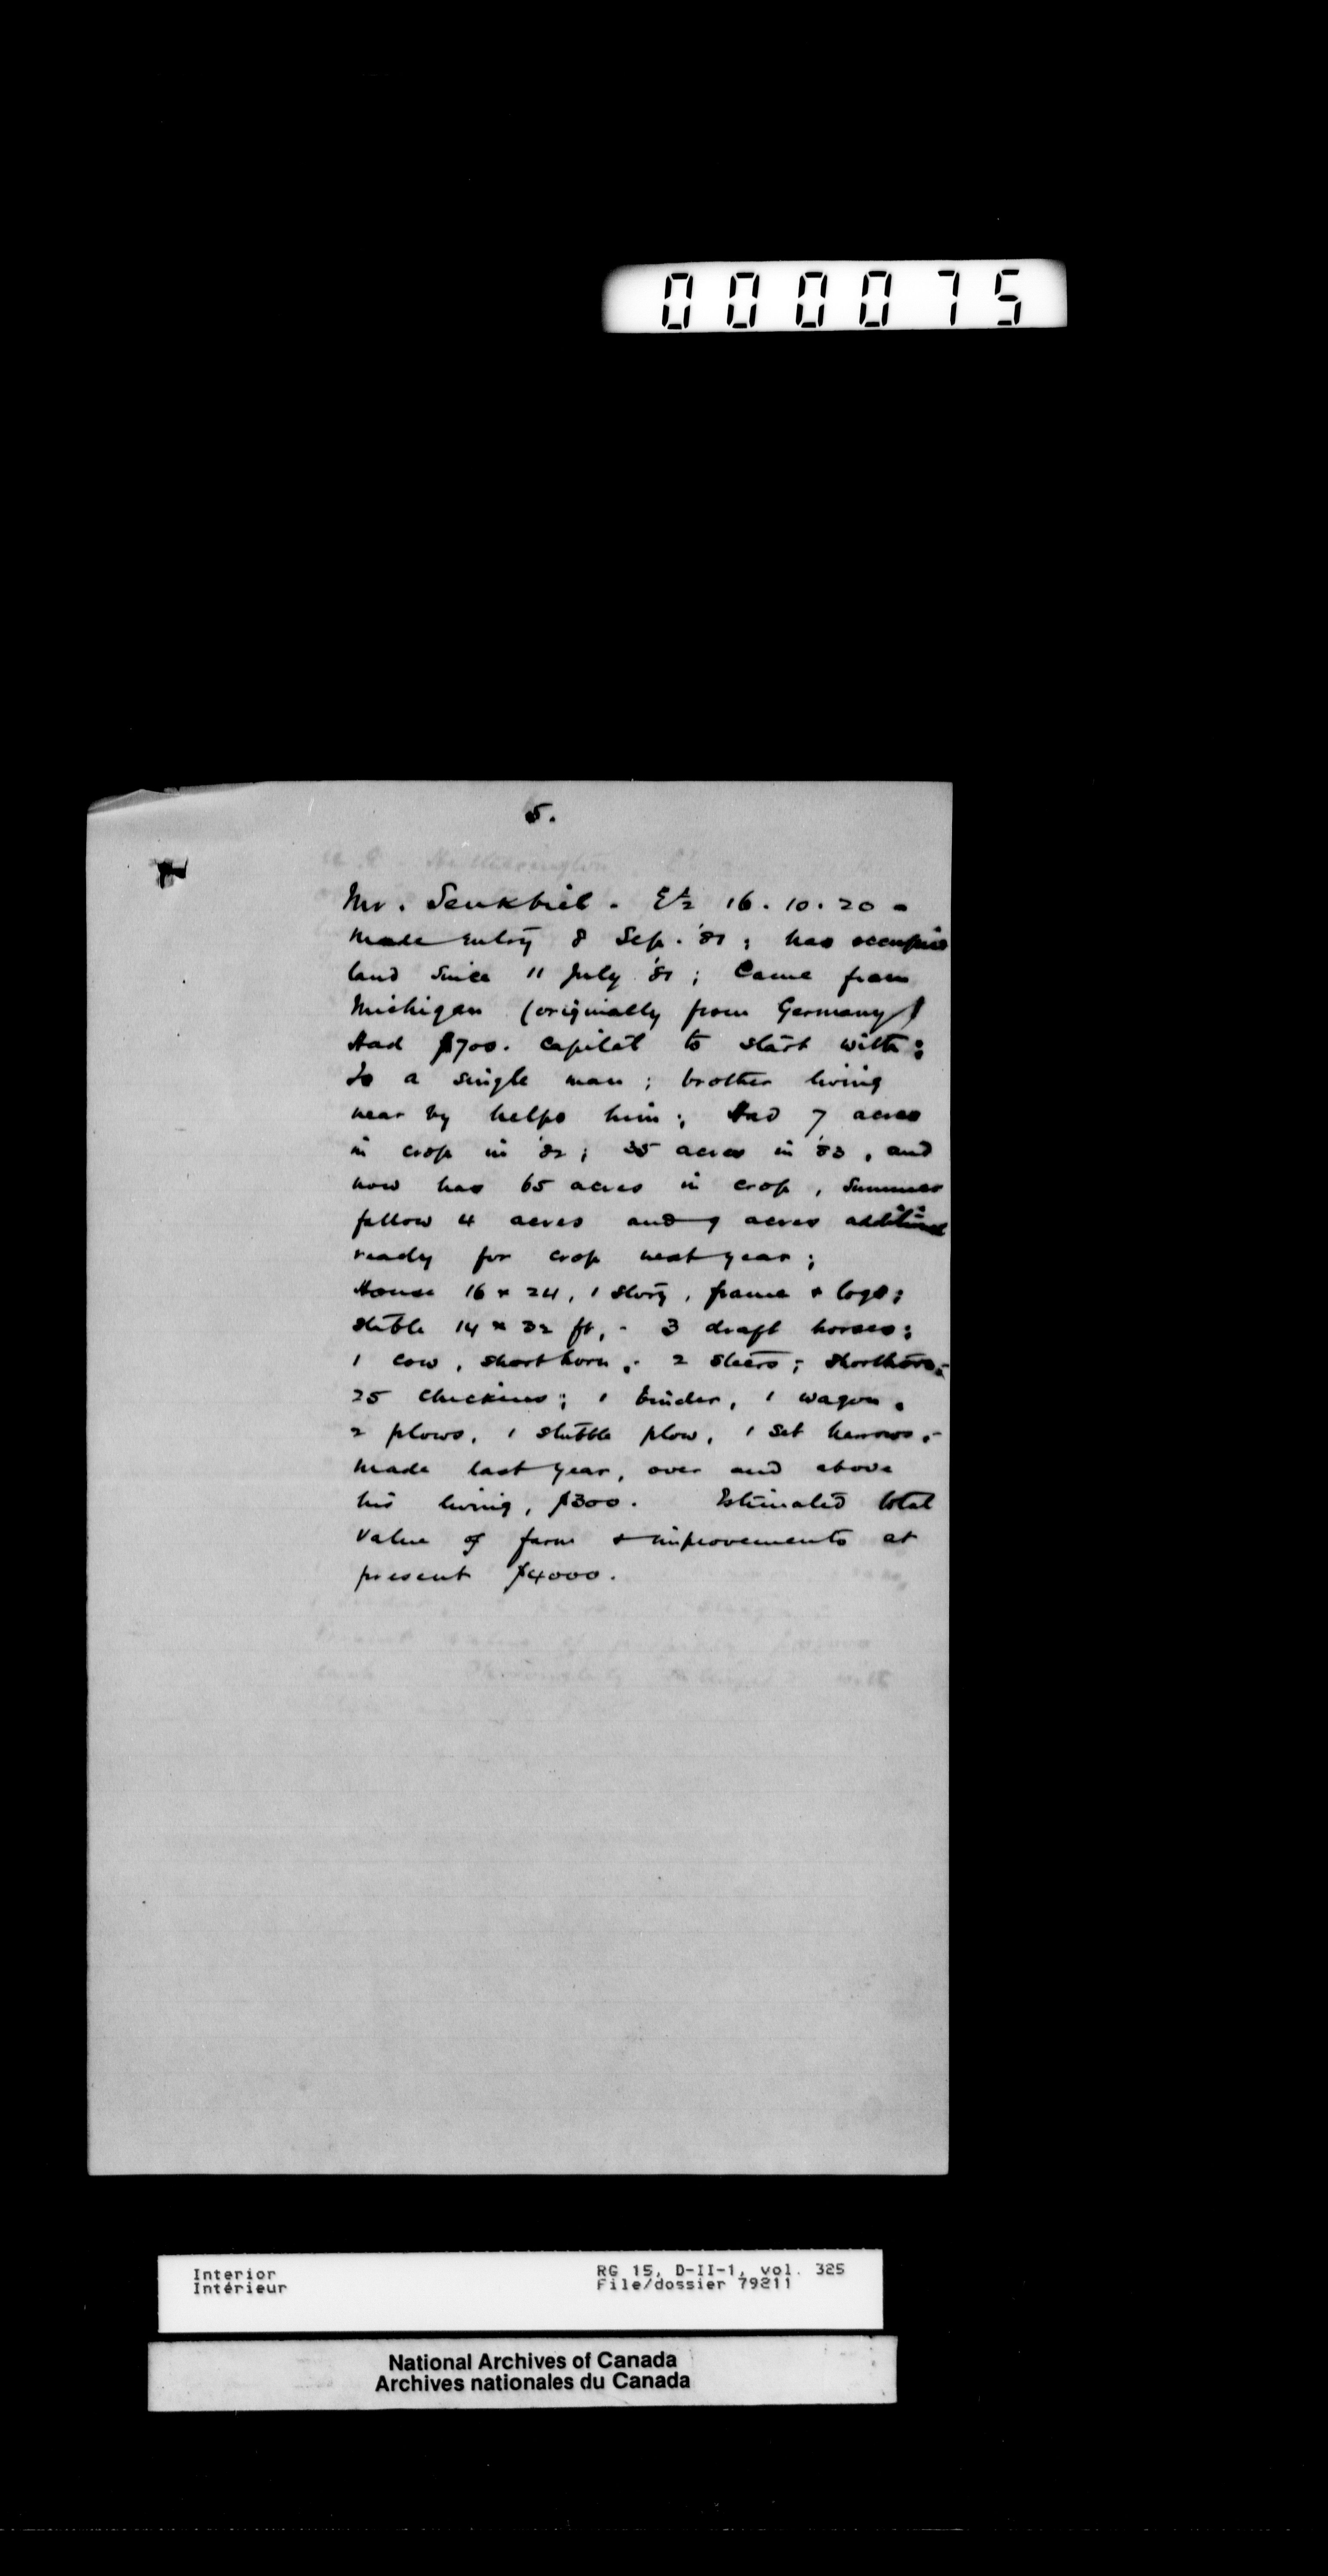 000075
5.
Mr. Senkbiel. E½ 16.10.20 -
Made entry 8 Sep. '81; has occupied
land since 11 July '81; Came from
Michigan (originally from Germany)
Had $700. capital to start with;
Is a single man; brother living
near by helps him; Had 7 acres
in crop in '82; 35 acres in '83, and
now has 65 acres in crop, summer
fallow 4 acres and 9 acres additional
ready for crop next year;
House 16 x 24, 1 story, frame & logs;
stable 14 x 32 ft, - 3 draft horses;
1 cow, shorthorn; 2 steers; shorthorn;
25 chickens; 1 binder, 1 wagon,
2 plows, 1 stubble plow, 1 set harrows,-
made last year, over and above
his living, $300. Estimated total
value of farm & improvements at
present $4000.
Interior
Intérieur
RG 15, D-II-1, vol. 325
File/dossier 79211
National Archives of Canada
Archives nationales du Canada